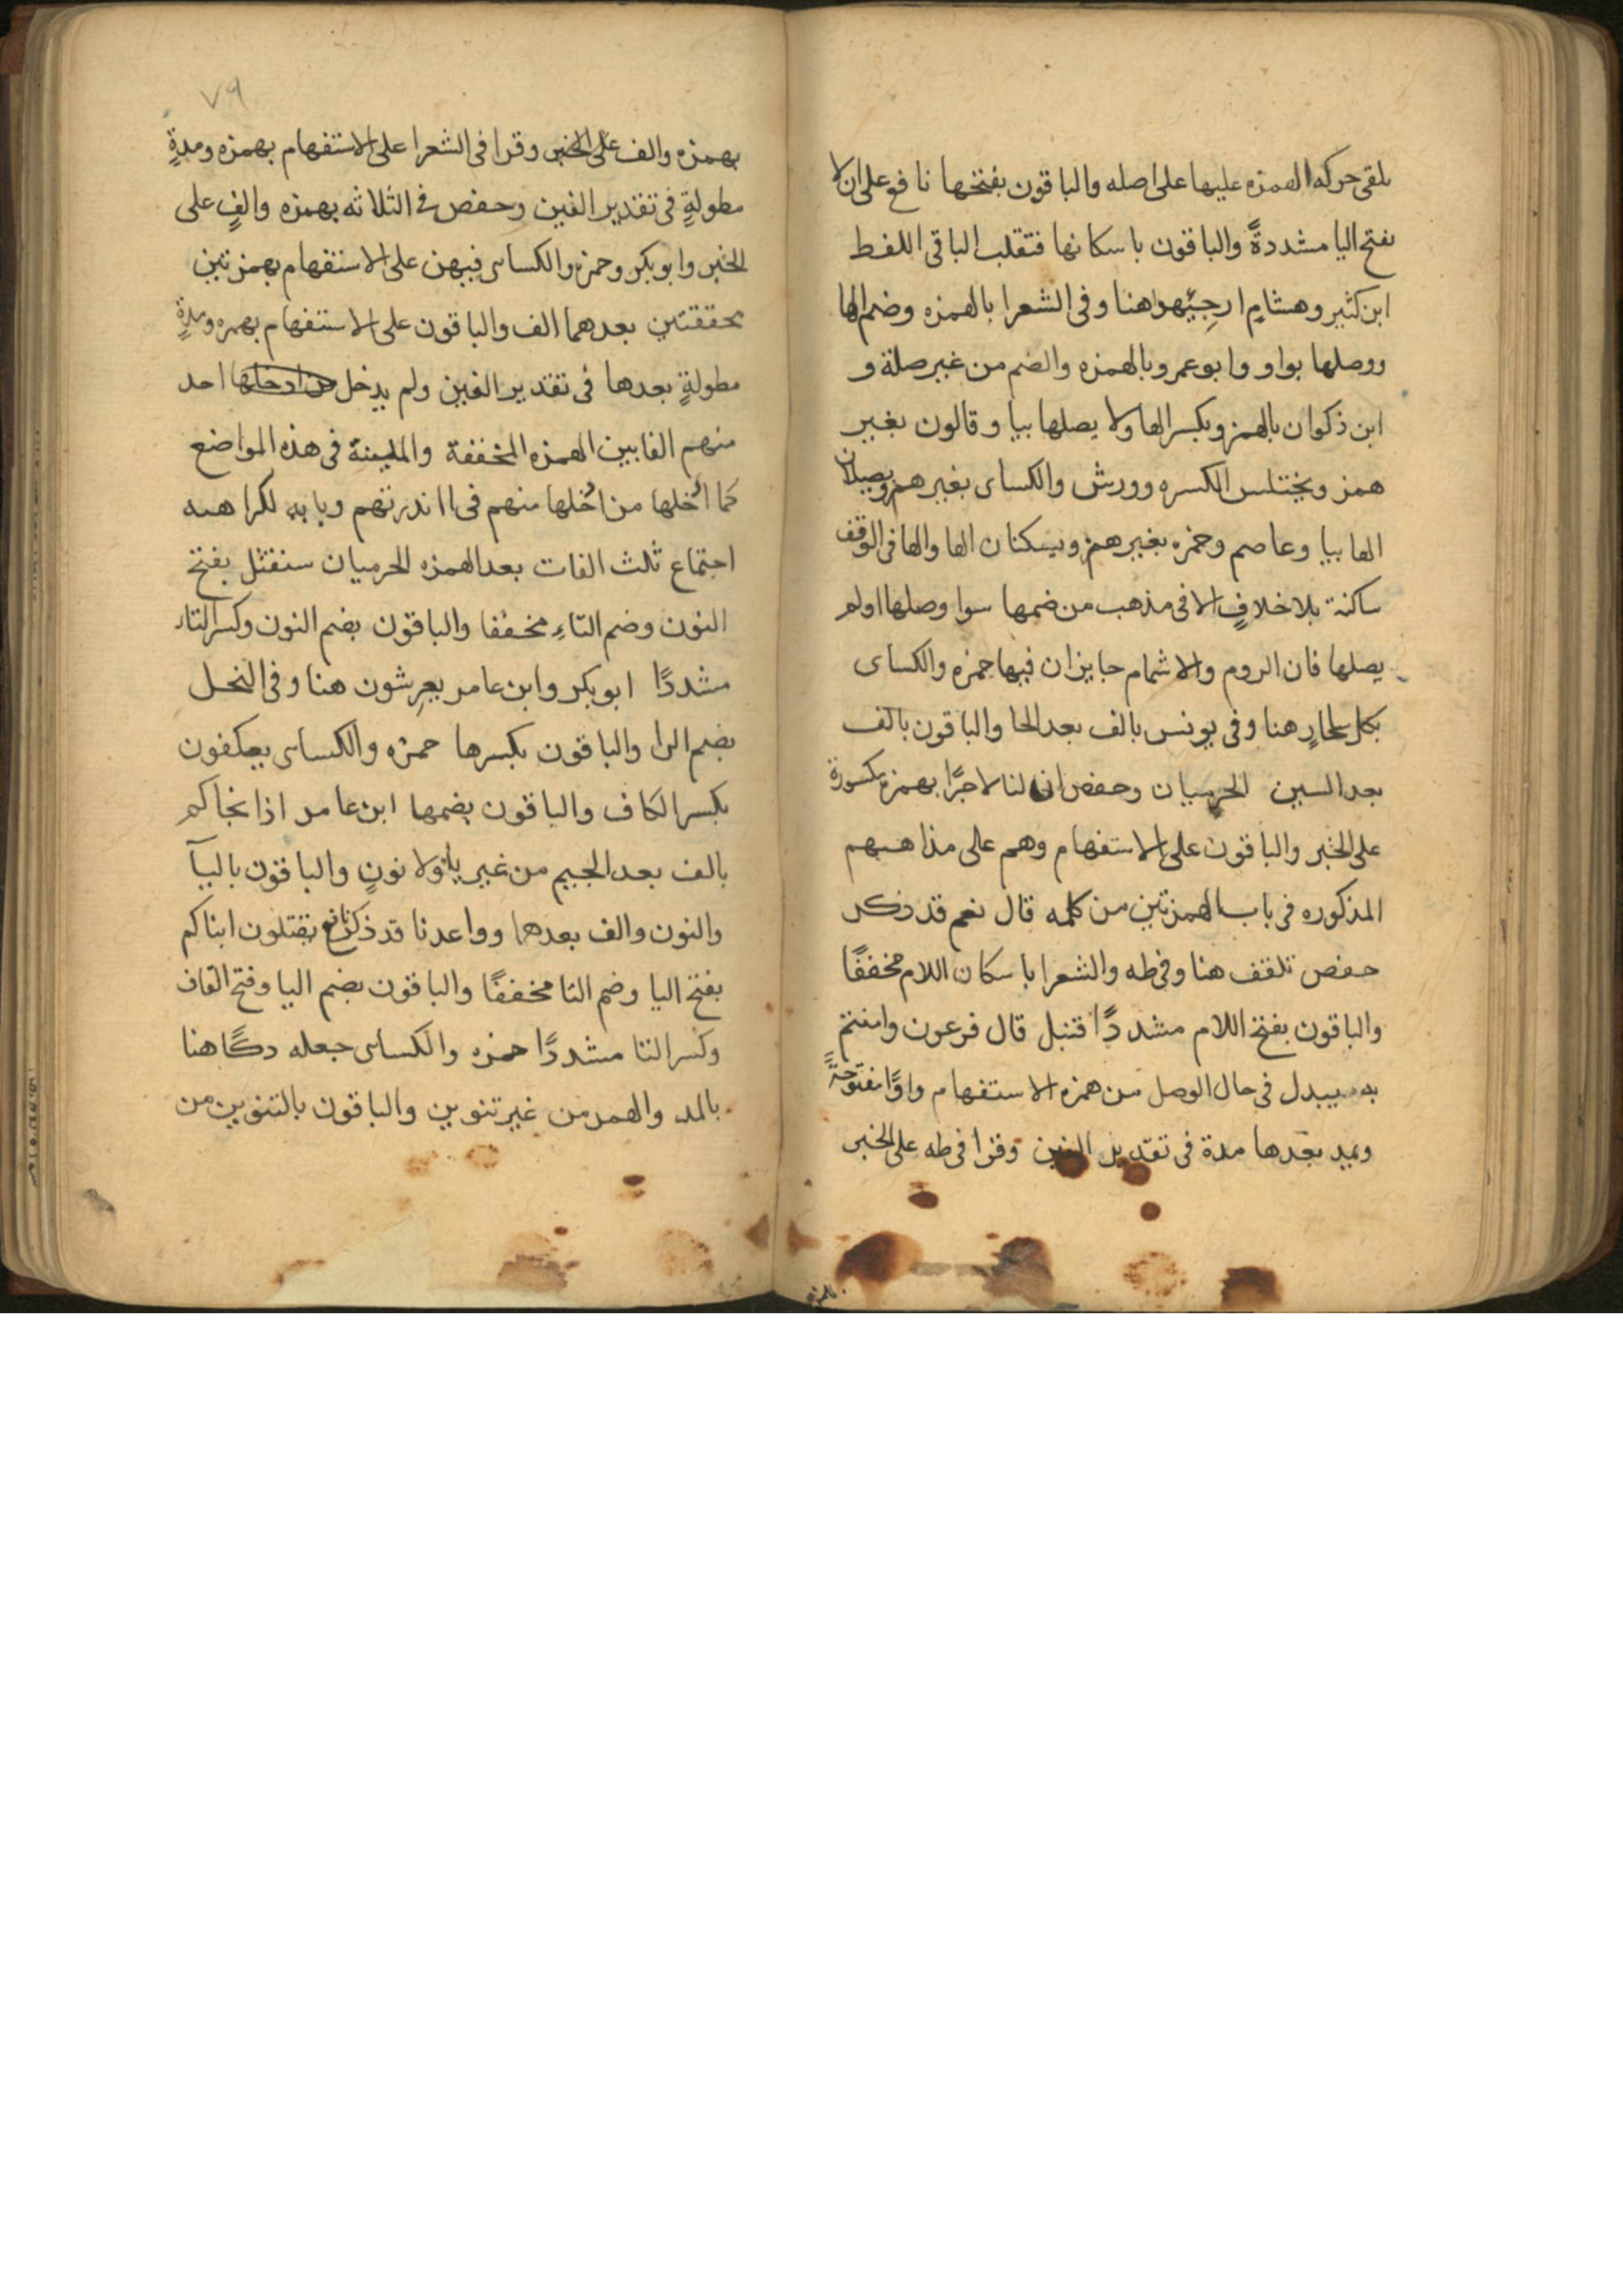 يلقى حركه الهمزه عليها على اصله والباقون بفتحها نافع على ان لا
بفتح اليا مشددةً والباقون باسكانها فتقلب الباقى اللفظ
ابن كثير وهشامٍ ارجِئهوا هنا وفى الشعرا بالهمزه وضم الها
ووصلها بواو وابو عمرو بالهمزه والضم من غير صلة و
ابن ذكوان بالهمز وبكسر الها ولا يصلها بيا وقالون بغير
همز ويختلس الكسره وورش والكساى بغير همز ويصلان
الها بيا وعاصم وحمزه بغير همز ويسكنان الها والها فى الوقف
ساكنة بلا خلافٍ الا فى مذهب من ضمها سوا وصلها اولم
يصلها فان الروم والاشمام جايزان فيها حمزه والكساى
بكل سحارٍ هنا وفى يونس بالف بعد الحا والباقون بالف
بعد السين الحرميان وحفص ان لنا لاجرًا بهمزة مكسورة
على الخبر والباقون على الاستفهام وهم على مذاهبهم
المذكوره فى باب الهمزتين من كلمه قال نعم قد ذكر
حفص تلقف هنا وفى طه والشعرا باسكان اللام مخففًا
والباقون بفتح اللام مشددًا قنبل قال فرعون وامنتم
به يبدل فى حال الوصل من همزه الاستفهام واوًا مفتوحةً
ويمد بعدها مدة فى تقدير الفين وقرا فى طه على الخبر
بالهمزه
٧٩
بهمزه والف على الخبر وقرا فى الشعرا على الاستفهام بهمزه ومدةٍ
مطولةٍ فى تقدير الفين وحفص فى الثلاثه بهمزه والفٍ على
الخبر وابو بكر وحمزه والكساى فيهن على الاستفهام بهمزتين
محققتين بعدهما الف والباقون على الاستفهام بهمزه ومدةٍ
مطولةٍ بعدها فى تقدير الفين ولم يدخل احد
منهم الفا بين الهمزه المخففة والملينة فى هذه المواضع
كما ادخلها من ادخلها منهم فى اانذرتهم وبابه لكراهيه
اجتماع ثلث الفات بعد الهمزه الحرميان سنقتل بفتح
النون وضم التاءِ مخففا والباقون بضم النون وكسر التاء
مشددًا ابو بكر وابن عامر يعرشون هنا وفى النحل
بضم الرا والباقون بكسرها حمزه والكساى يعكفون
بكسر الكاف والباقون بضمها ابن عامر اذ انجاكم
بالف بعد الجيم من غير ياءٍ ولا نونٍ والباقون باليآ
والنون والف بعدها وواعدنا قد ذكر نافع يقتلون ابناكم
بفتح اليا وضم التا مخففًا والباقون بضم اليا وفتح القاف
وكسر التا مشددًا حمزه والكساى جعله دكًا هنا
بالمد والهمز من غير تنوين والباقون بالتنوين من